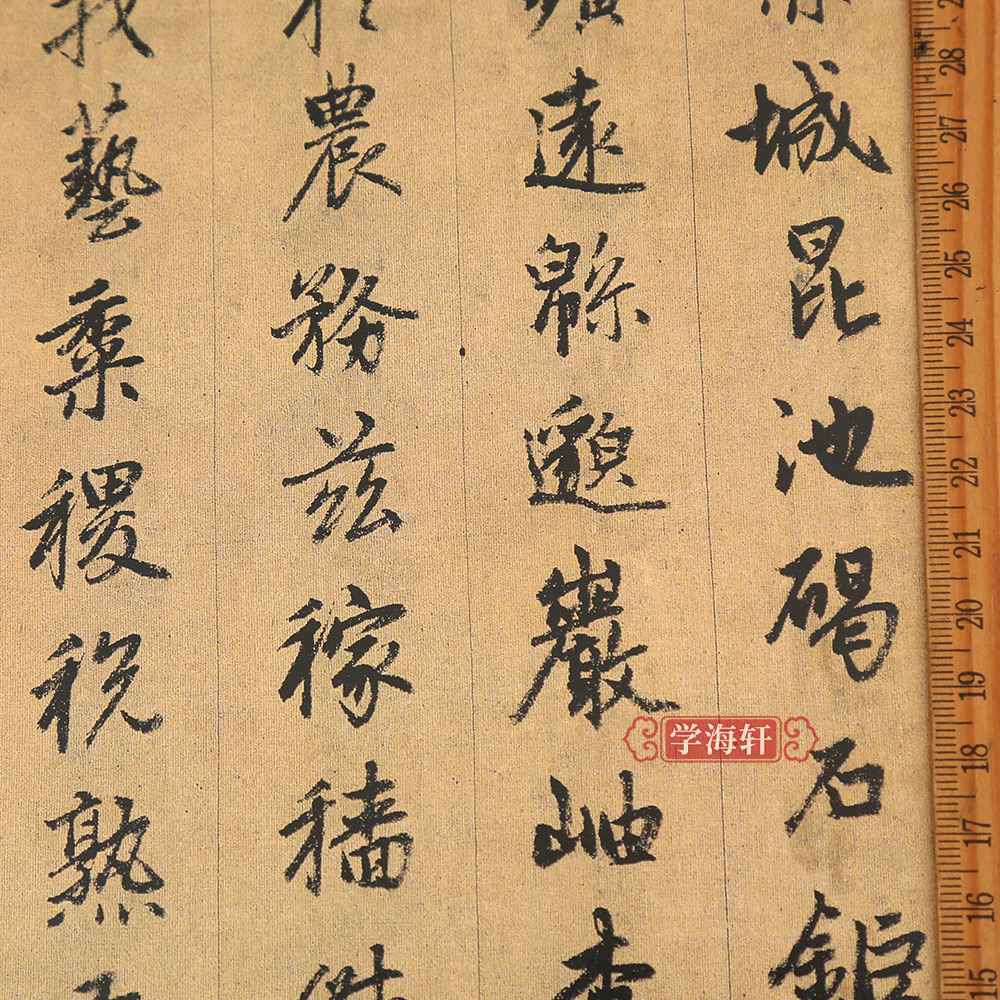 城昆池碣石鉅
曠遠緜邈巖岫杳
於農務茲稼穡俶
我藝黍稷稅熟
学海轩
28 27 26 25 24 23 22 21 20 19 18 17 16 15